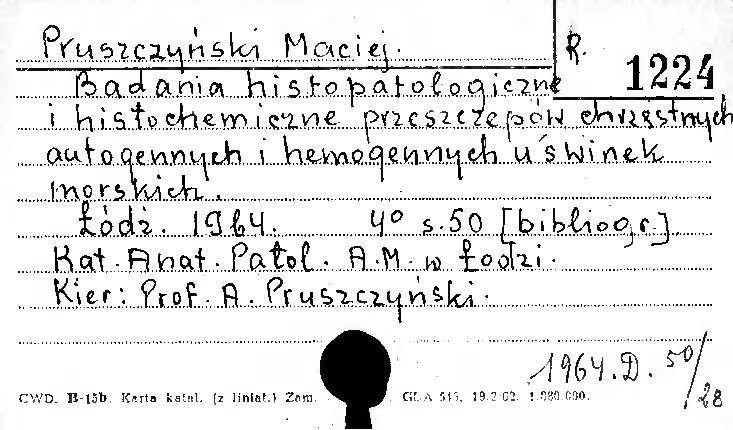 Pruszczyński Maciej.
R. 1224
Badania histopatologiczne
i histochemiczne przeszczepów chrzęstnych
autogennych i hemogennych u świnek
morskich.
Łódź. 1964. 4° s. 50 [bibliogr.]
Kat. Anat. Patol. A.M. w Łodzi.
Kier: Prof. A. Pruszczyński.
1964.D. 50/28
CWD. B-15b. Karta katal. (z liniat.) Zam. GLA 515. 19.2.62. 1.980.000.